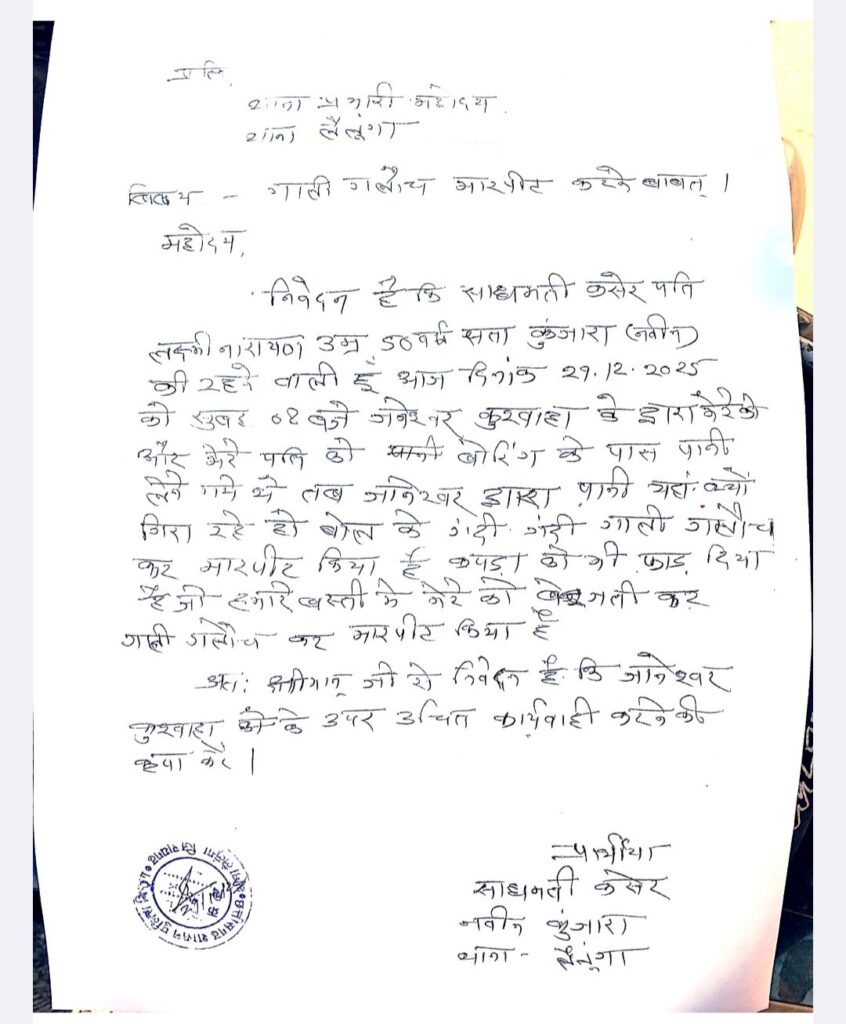 प्रति,
थाना प्रभारी महोदय
थाना लैलूंगा
विषय - गाली गलौच मारपीट करने बाबत् ।
महोदय,
निवेदन है कि साधमती कसेर पति
लक्ष्मी नारायण उम्र 50 वर्ष कुंजारा (नवीन)
की रहने वाली हूं आज दिनांक 29.12.2025
को सुबह 08 बजे कुश्वाहा के द्वारा मेरेको
और मेरे पति को बोरिंग के पास पानी
लेने गये थे तब जानेश्वर द्वारा पानी यहां क्यों
गिरा रहे हो बोल के गंदी गंदी गाली गलौच
कर मारपीट किया है कपड़ा को भी फाड़ दिया
है जो हमारे बस्ती मे मेरे को कर
गाली गलौच कर मारपीट किया है
अतः श्रीमान् जी से निवेदन है कि जानेश्वर
कुश्वाहा के उपर उचित कार्यवाही करने की
कृपा करें |
प्रार्थीया
साधमती कसेर
नवीन कुंजारा
थाना - लैलुंगा